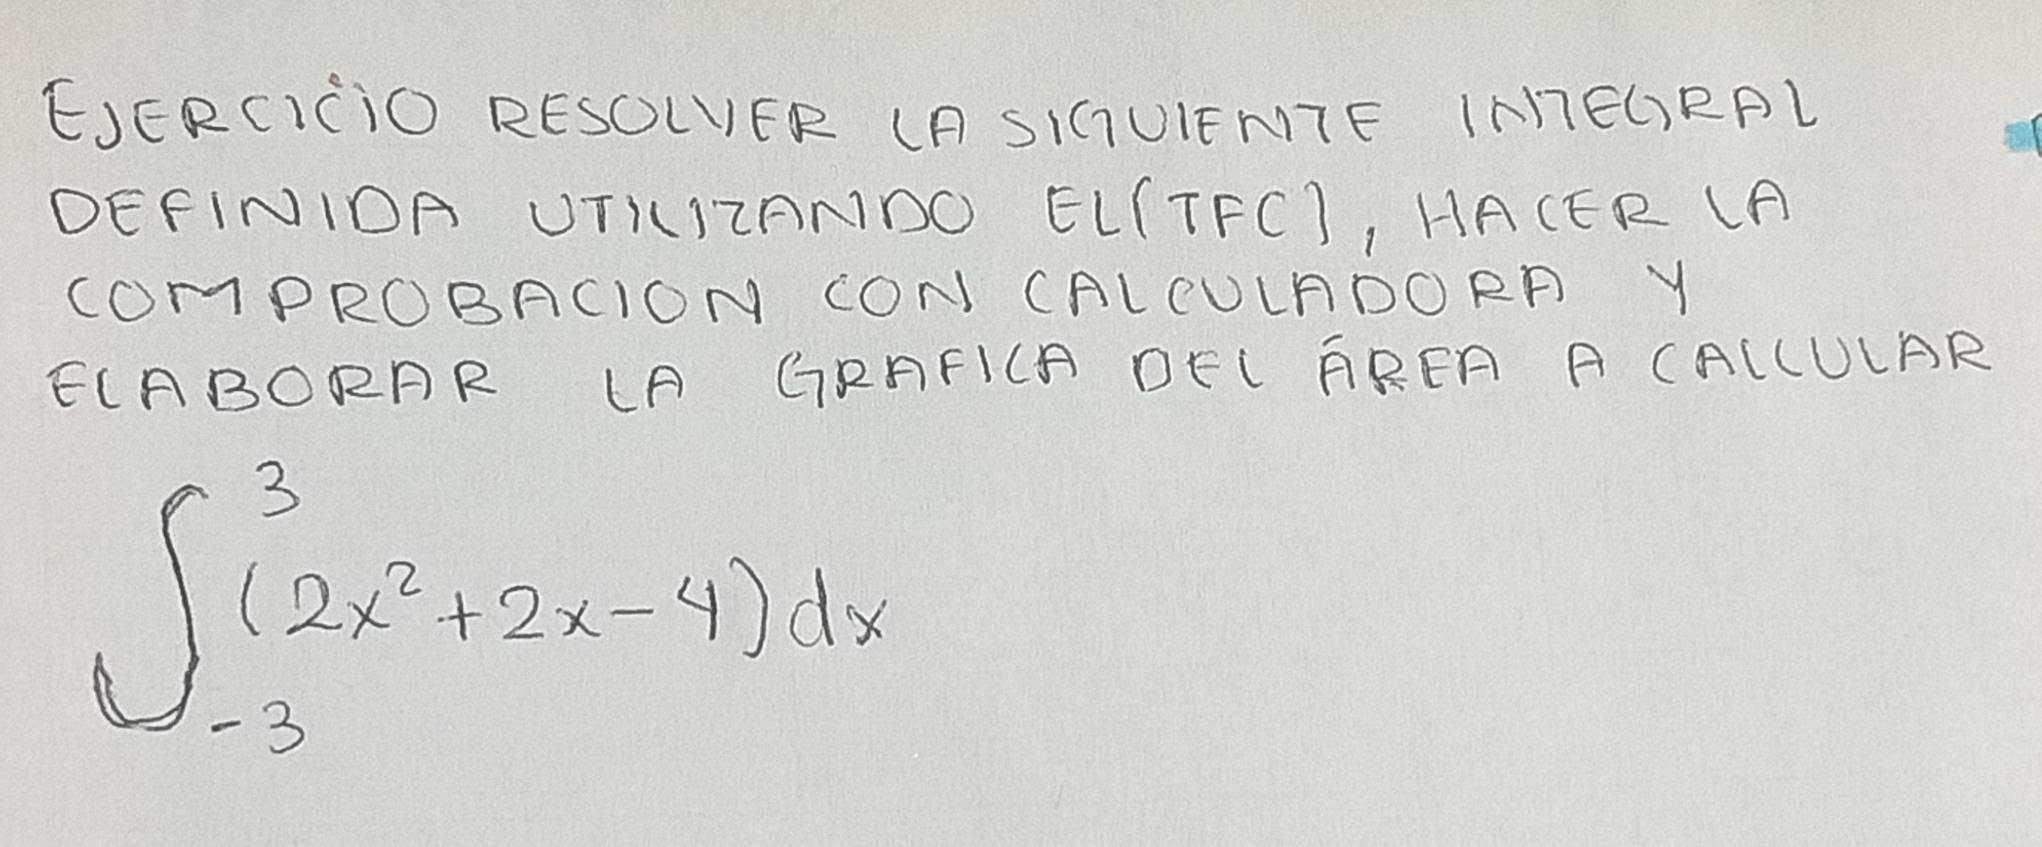 EJERCICIO RESOLVER LA SIGUIENTE INTEGRAL
DEFINIDA UTILIZANDO EL(TFC), HACER LA
COMPROBACION CON CALCULADORA Y
ELABORAR LA GRAFICA DEL ÁREA A CALCULAR
3
∫(2x²+2x-4)dx
-3